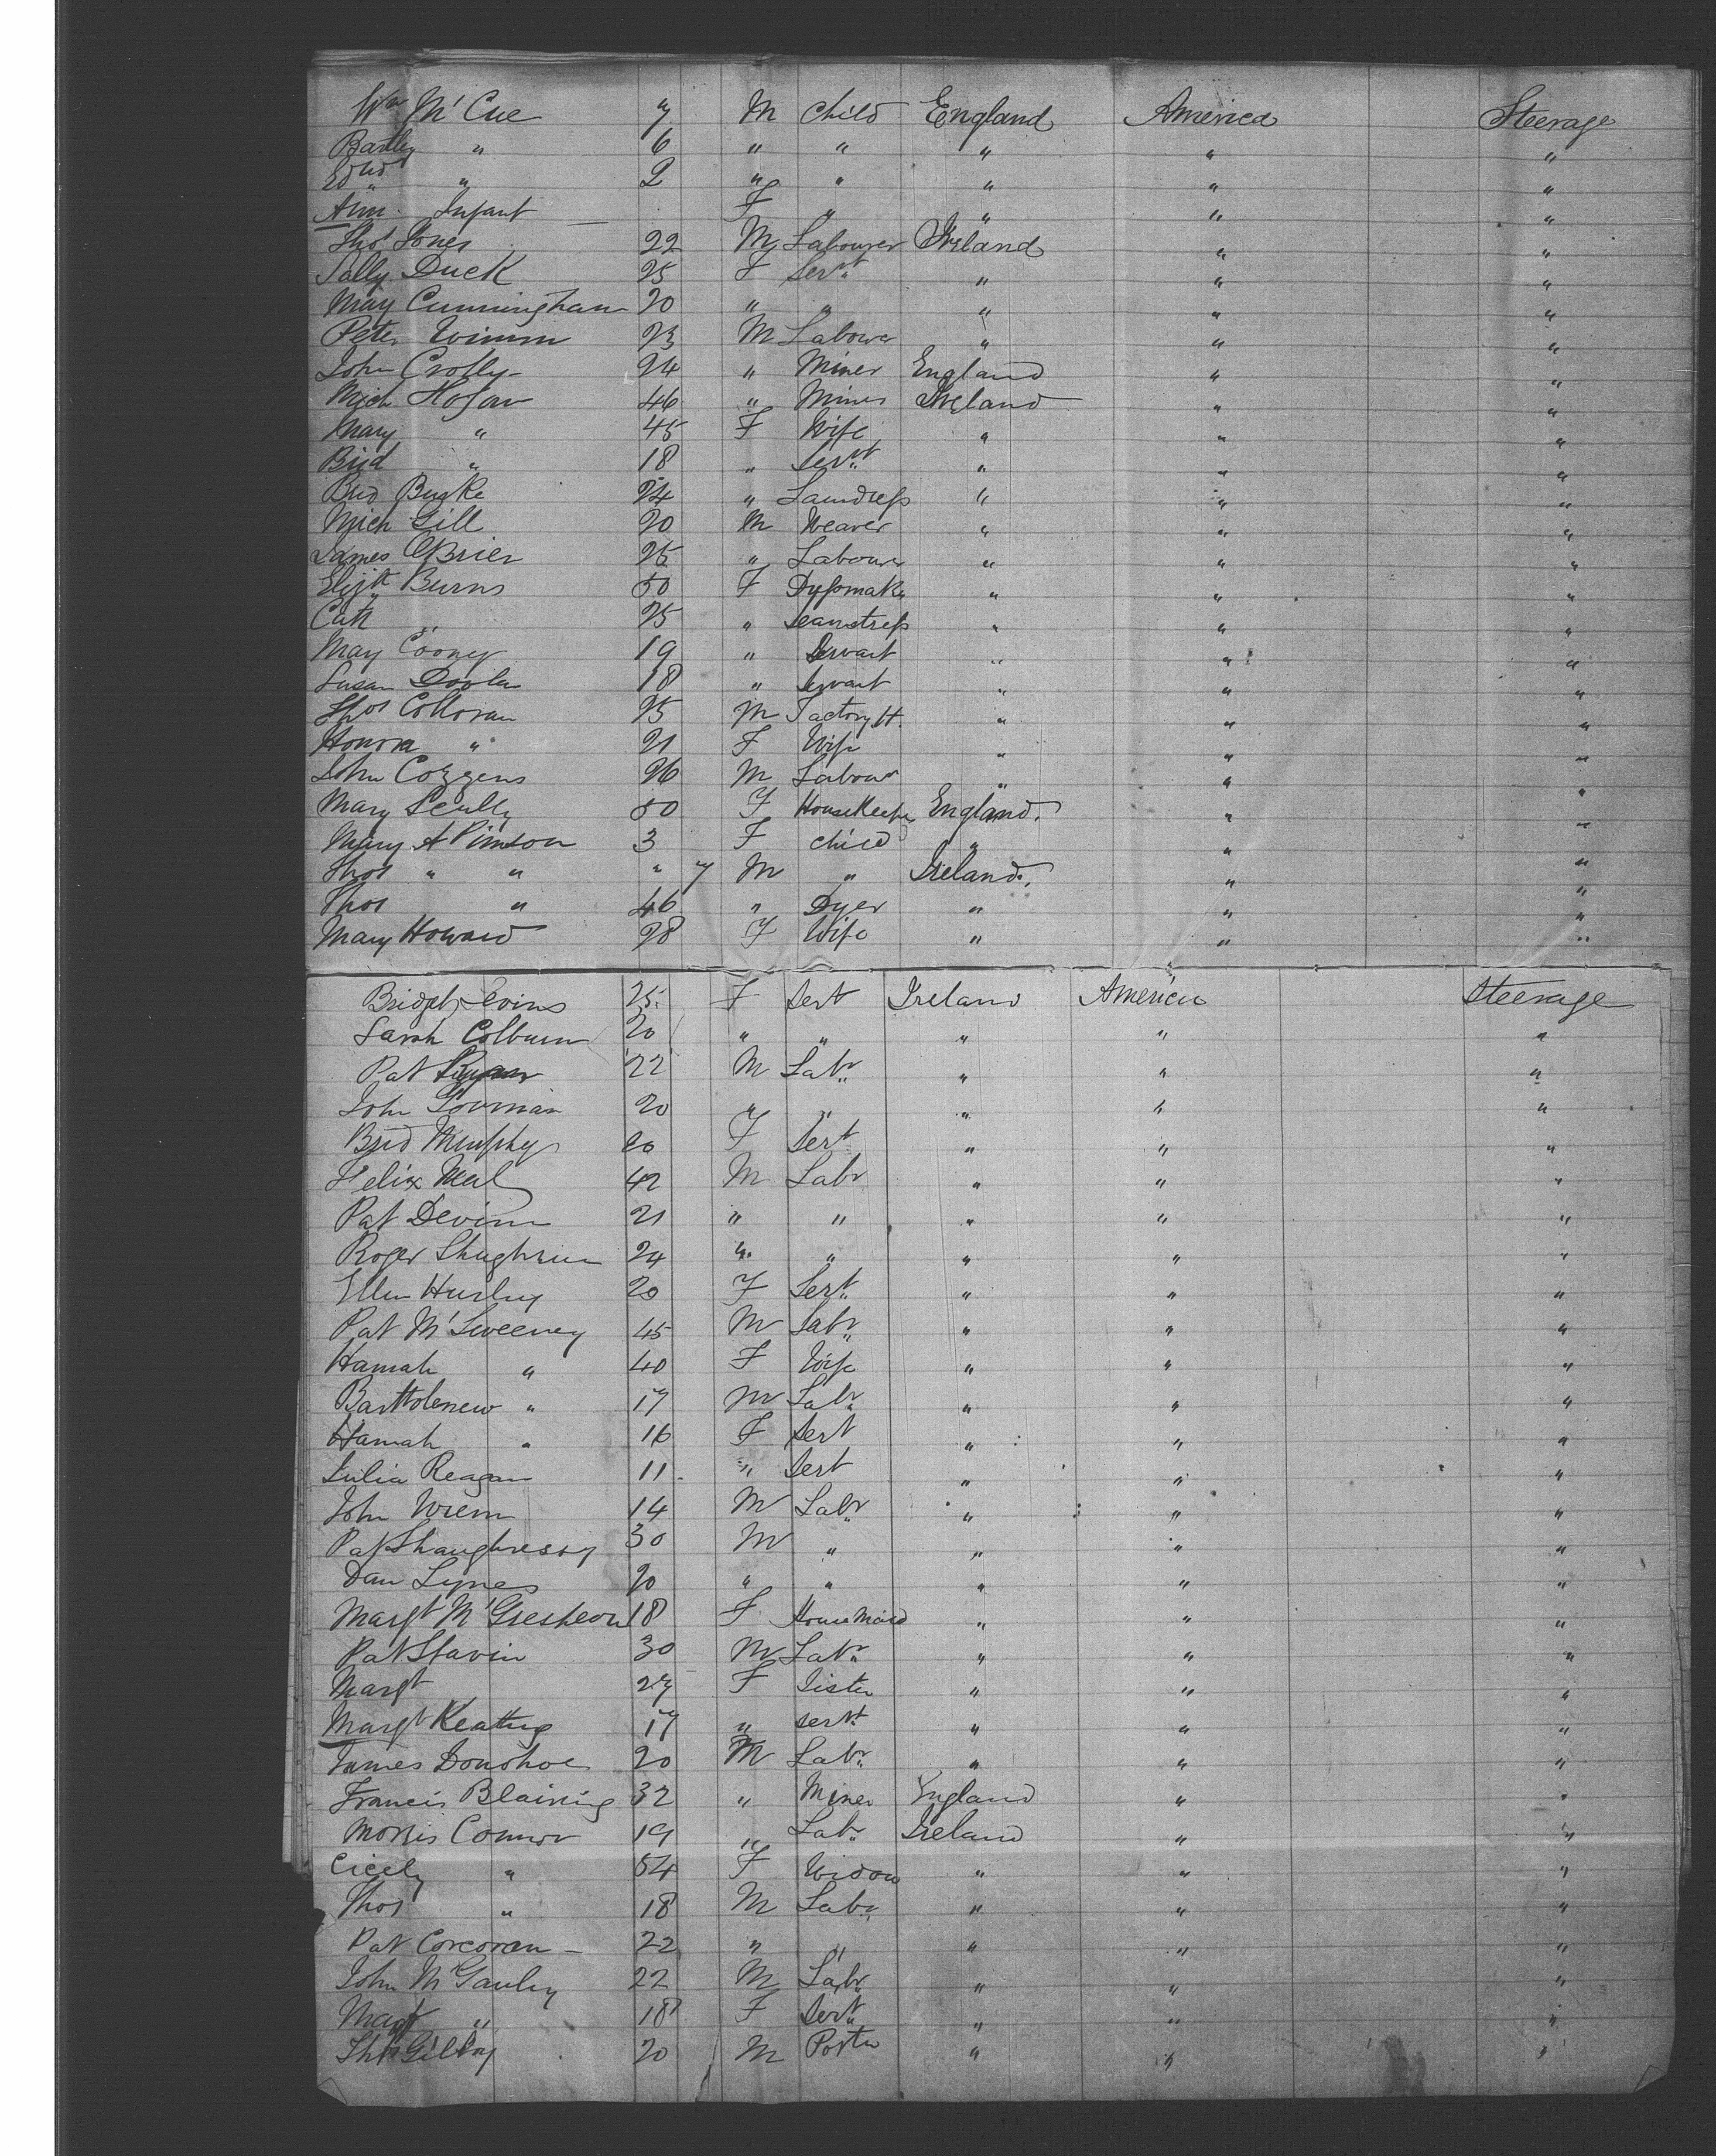 Wm McCue 7 M Child England America Steerage
Bartley " 6 " " " " "
Edwd " 2 " " " " "
Ann Infant — F " " " "
Thos Jones 22 M Labourer Ireland " "
Sally Duck 25 F Servt " " "
Mary Cunningham 20 " " " " "
Peter 23 M Labourer " " "
John Crolly 24 " Miner England " "
Mich Hogan 46 " Miner Ireland " "
Mary " 45 F Wife " " "
Brid " 18 " Servt " " "
Brid Burke 24 " Laundress " " "
Mich Gill 20 M Weaver " " "
James OBrien 25 " Labourer " " "
Elizth Burns 50 F Dressmakr " " "
Cath " 25 " Seamstress " " "
Mary Cooney 19 " Servant " " "
Susan Doolan 18 " Servant " " "
Thos Colloran 25 M Factory H. " " "
Honora " 21 F Wife " " "
John Cozzens 26 M Labour " " "
Mary Scully 50 F HouseKeeper England. " "
Mary A Pimson 3 F child " " "
Thos " " " 7 M " Ireland. " "
Thos " 46 " Dyer " " "
Mary Howard 28 F Wife " " "
Bridget Levins 25 F Sert Ireland America Steerage
Sarah Colburn 20 " " " " "
Pat Ryan 22 M Labr " " "
John Gorman 20 " " " " "
Brid Murphy 20 F Sert " " "
Felix Neal 42 M Labr " " "
Pat Devinn 21 " " " " "
Roger Shughrue 24 " " " " "
Ellen Hurley 20 F Sert " " "
Pat McSweeney 45 M Labr " " "
Hannah " 40 F Wife " " "
Bartholenew " 17 M Labr " " "
Hannah " 16 F Sert " " "
Julia Reagan 11 " Sert " " "
John Wrenn 14 M Labr " " "
Pat Shaughnessy 30 M " " " "
Dan Lynes 20 " " " " "
Margt 18 F House Maid " " "
Pat Slavin 30 M Labr " " "
Margt 27 F Sister " " "
Margt Keating 17 " Servt " " "
James Donohoe 20 M Labr " " "
Francis Blaining 32 " Miner England " "
Morris Connor 19 " Labr Ireland " "
Cicely " 54 F Widow " " "
Thos " 18 M Labr " " "
Pat Corcoran — 22 " " " " "
John McGauley 22 M Labr " " "
Margt " 18 F Sert " " "
Thos Gilboy 20 M Porter " " "